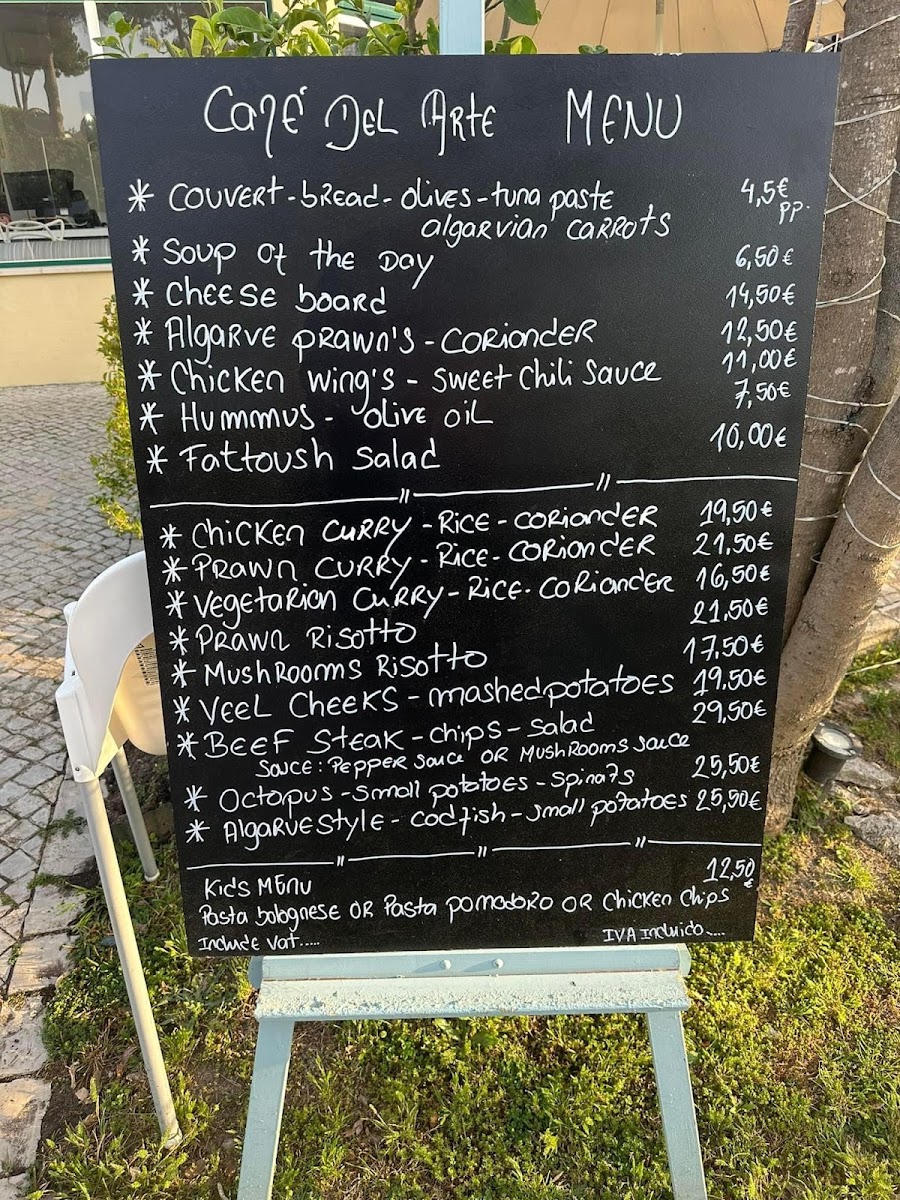 Café Del Arte MENU
* Couvert - bread - olives - tuna paste 4,5€
algarvian carrots pp.
* Soup of the Day 6,50€
* Cheese board 14,50€
* Algarve prawn's - coriander 12,50€
* Chicken wing's - sweet chili sauce 11,00€
* Hummmus - olive oil 7,50€
* Fattoush salad 10,00€
* Chicken curry - Rice - coriander 19,50€
* Prawn curry - Rice - coriander 21,50€
* Vegetarian curry - Rice - coriander 16,50€
* Prawn Risotto 21,50€
* Mushrooms Risotto 17,50€
* Veel cheeks - mashed potatoes 19,50€
* Beef steak - chips - salad 29,50€
Sauce: Pepper sauce or Mushrooms sauce
* Octopus - small potatoes - spinats 25,50€
* Algarve style - codfish - small potatoes 25,50€
Kid's Menu 12,50€
Pasta bolognese or Pasta pomodoro or Chicken Chips
Include Vat..... IVA Incluido.....